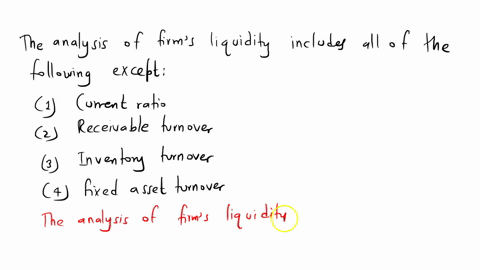 The analysis of firm's liquidity includes all of the
following except:
(1) Current ratio
(2) Receivable turnover
(3) Inventory turnover
(4) fixed asset turnover
The analysis of firm's liquidity